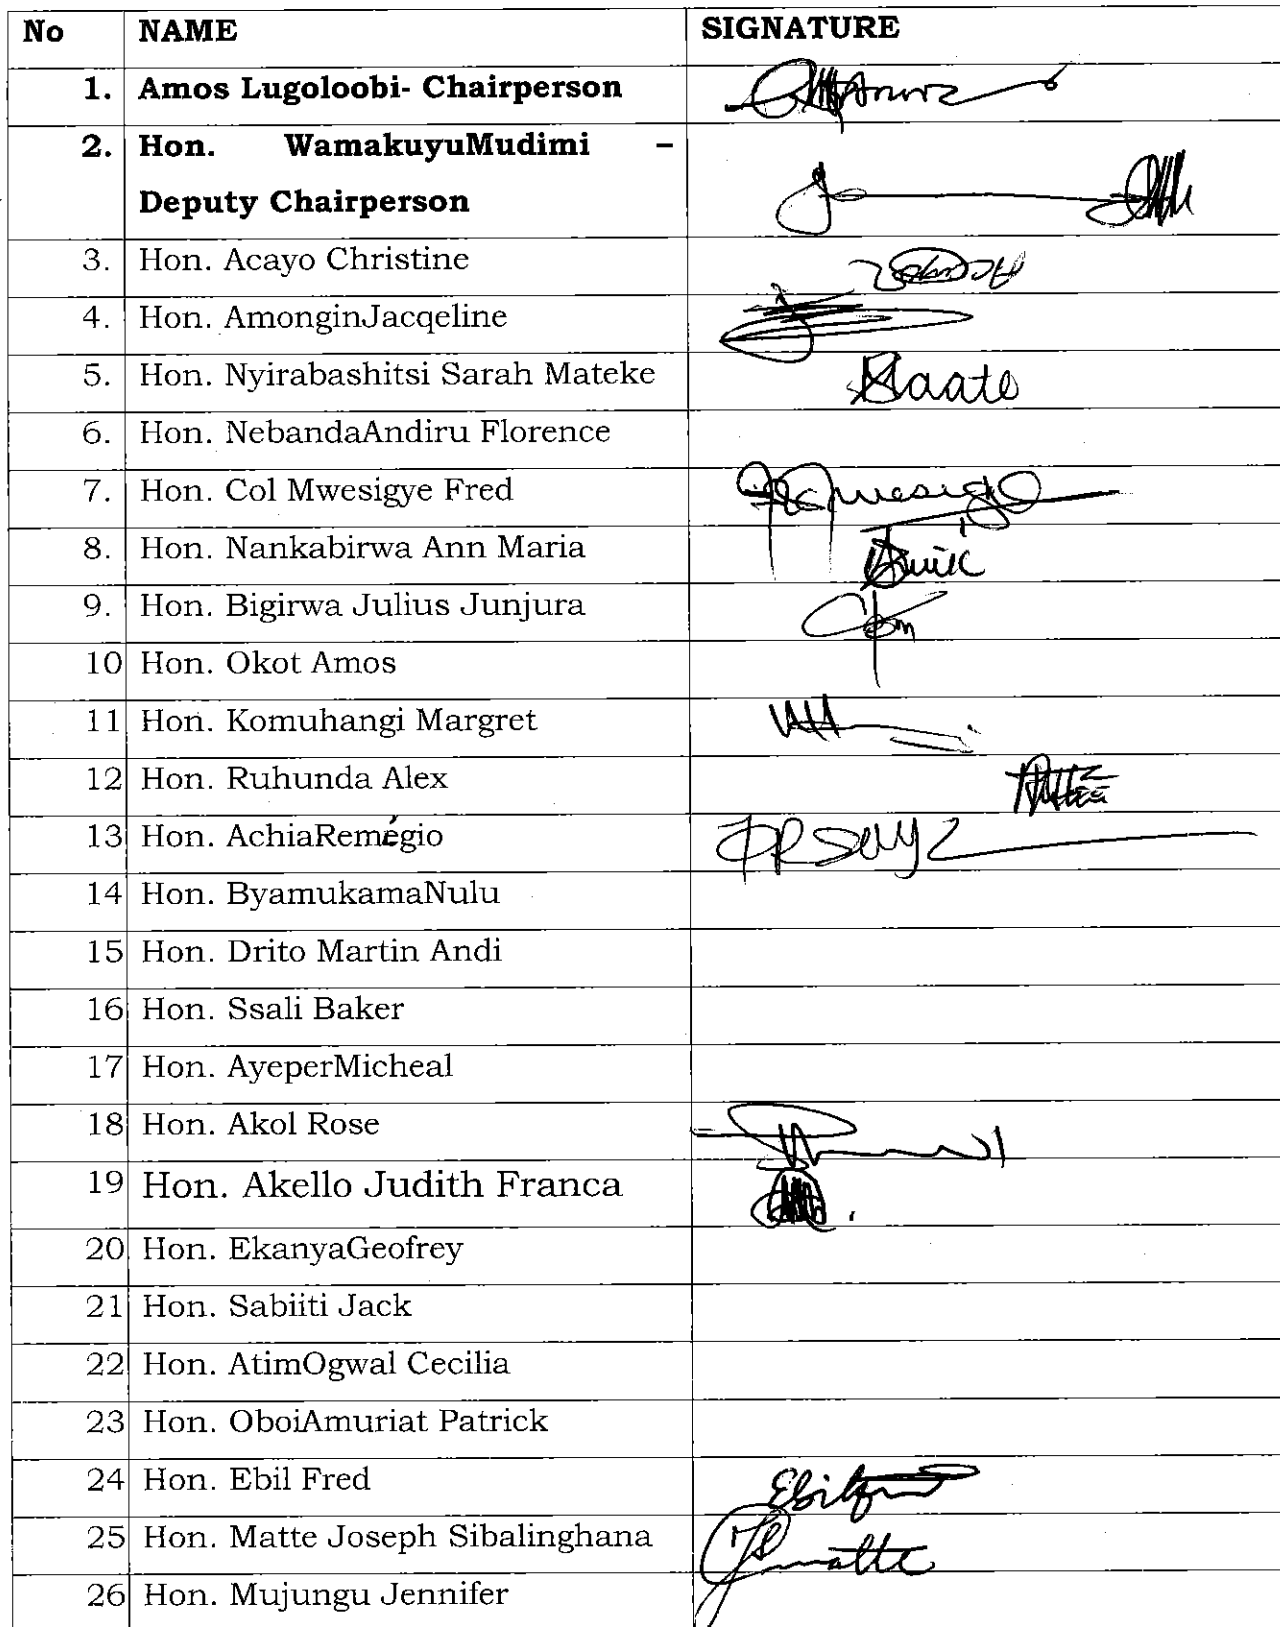 No NAME SIGNATURE
1. Amos Lugoloobi- Chairperson
2. Hon. WamakuyuMudimi –
Deputy Chairperson
3. Hon. Acayo Christine
4. Hon. AmonginJacqeline
5. Hon. Nyirabashitsi Sarah Mateke
6. Hon. NebandaAndiru Florence
7. Hon. Col Mwesigye Fred
8. Hon. Nankabirwa Ann Maria
9. Hon. Bigirwa Julius Junjura
10 Hon. Okot Amos
11 Hon. Komuhangi Margret
12 Hon. Ruhunda Alex
13 Hon. AchiaRemégio
14 Hon. ByamukamaNulu
15 Hon. Drito Martin Andi
16 Hon. Ssali Baker
17 Hon. AyeperMicheal
18 Hon. Akol Rose
19 Hon. Akello Judith Franca
20 Hon. EkanyaGeofrey
21 Hon. Sabiiti Jack
22 Hon. AtimOgwal Cecilia
23 Hon. OboiAmuriat Patrick
24 Hon. Ebil Fred
25 Hon. Matte Joseph Sibalinghana
26 Hon. Mujungu Jennifer